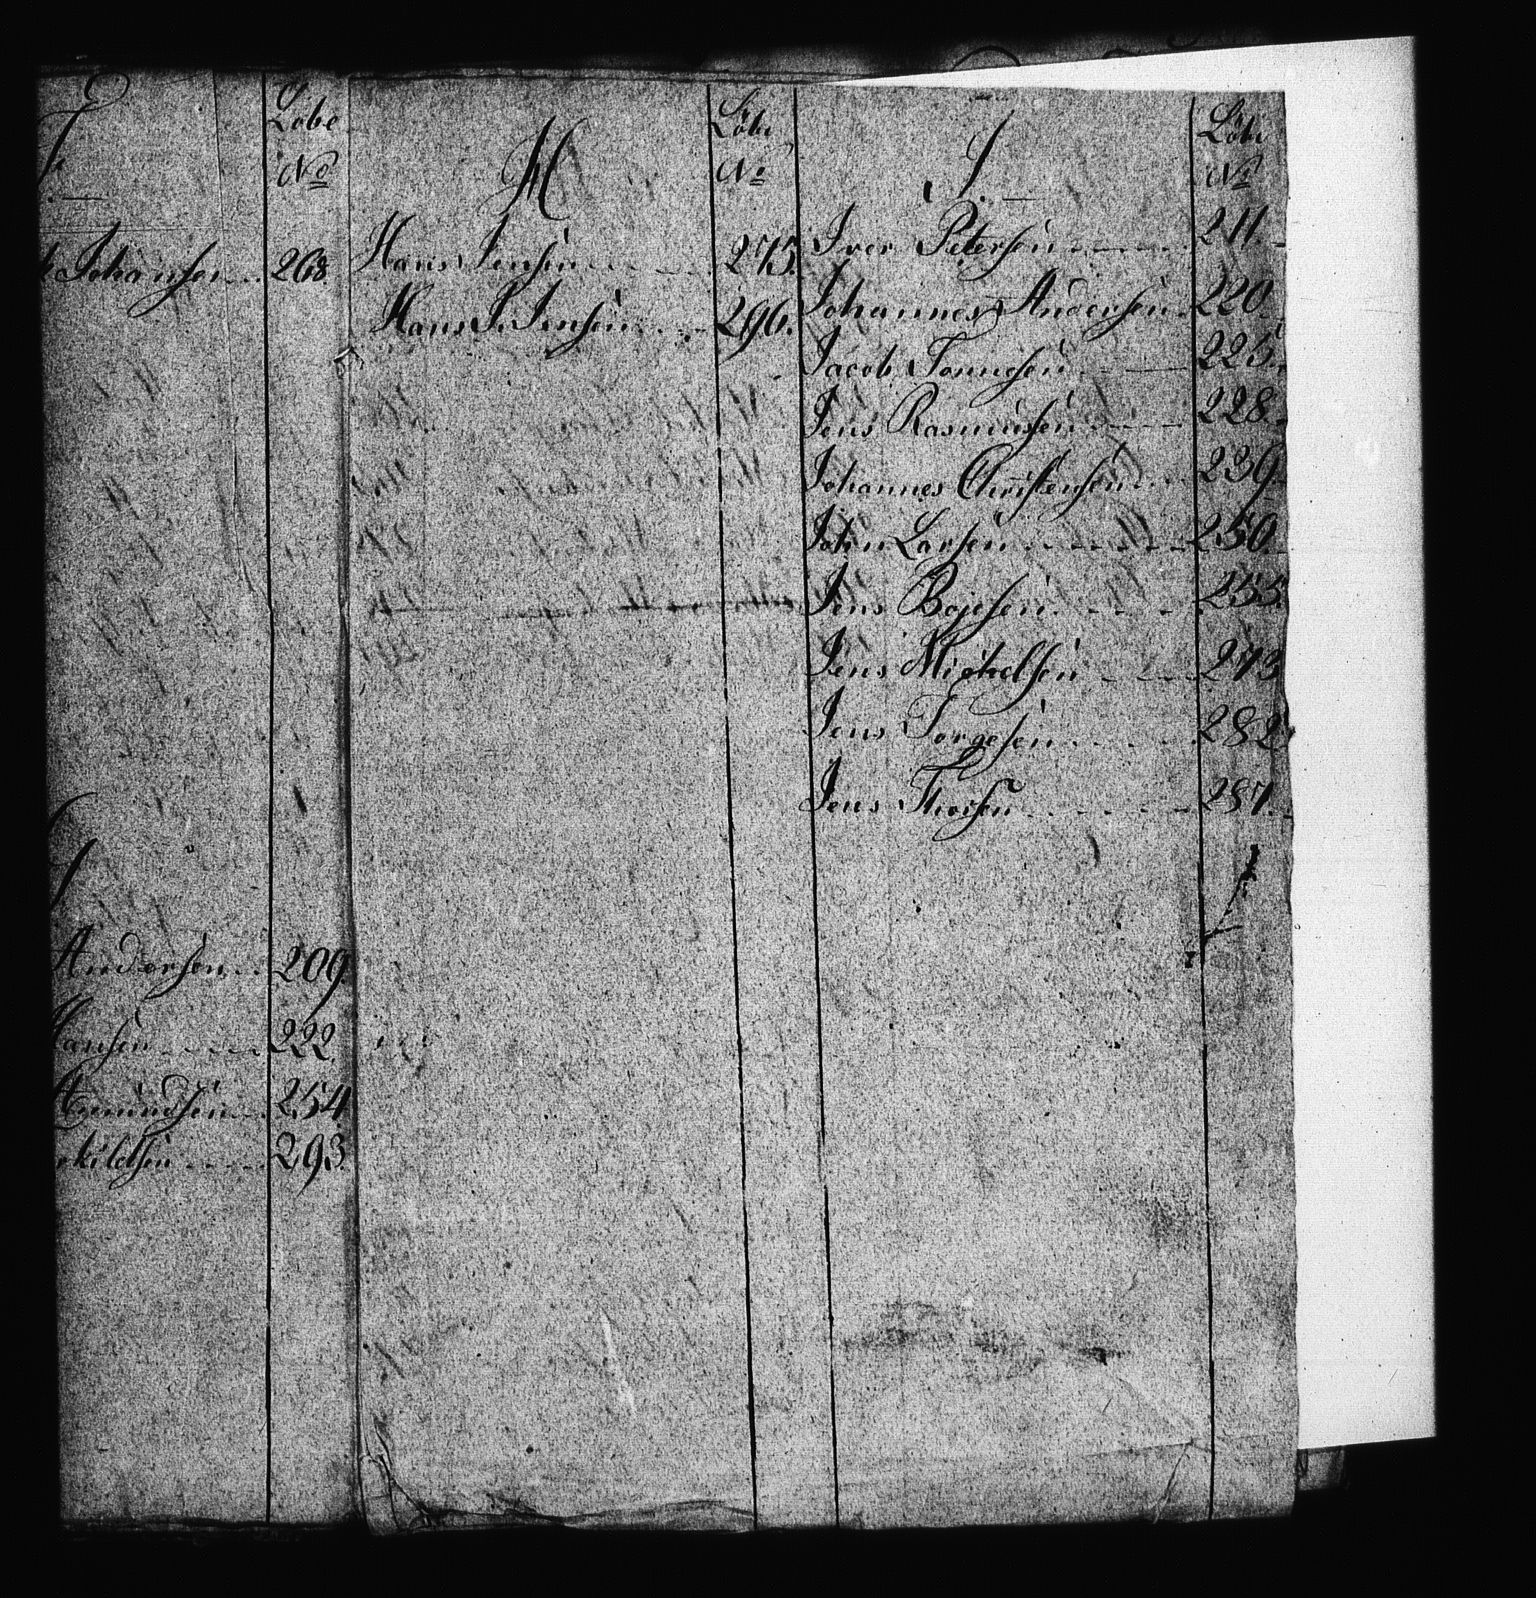 F. Løbe No
Johansen 268.
Andersen 209.
Hansen 222.
Amundsen 254.
293.
H Løbe No
Hans Jensen 275.
Hans J. Jensen 296.
J. Løbe No
Iver Petersen 211.
Johannes Andersen 220.
Jacob Tønnesen 225.
Jens Rasmussen 228.
Johannes Christensen 239.
John Larsen 250.
Jens Bojesen 255.
Jens Michelsen 273
Jens Torgesen 282
Jens Thorsen 287.